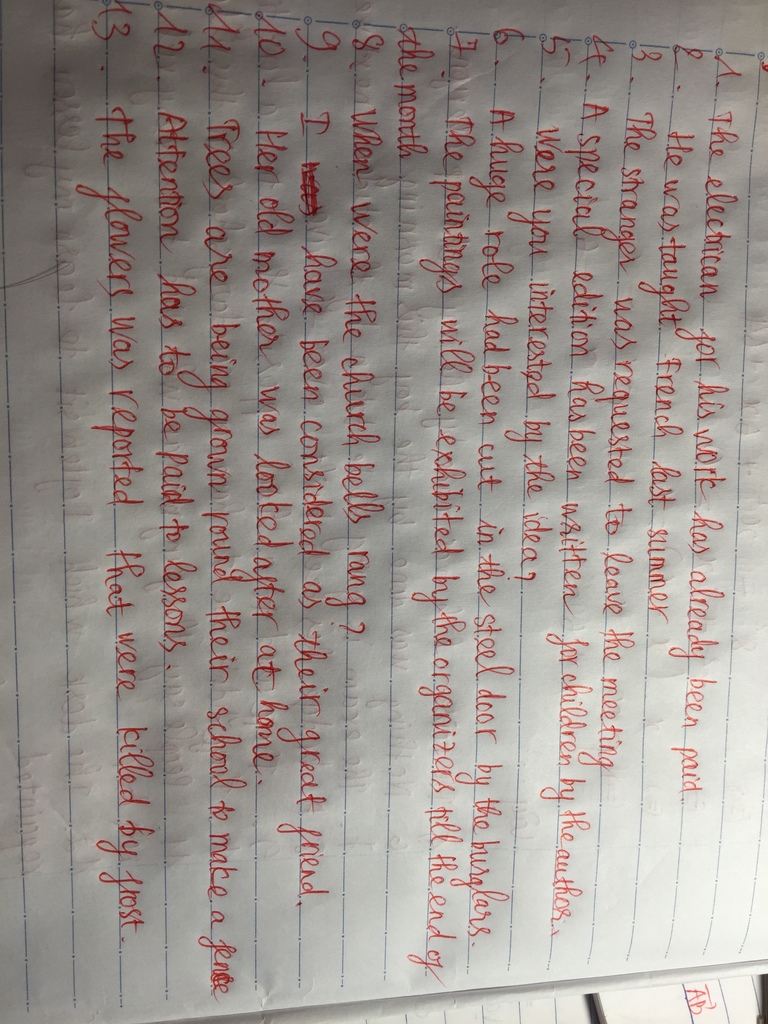 1. The electrican for his work has already been paid
2. He was taught French last summer
3. The stranger was requested to leave the meeting
4. A special edition has been written for children by the author.
5. Were you interested by the idea?
6. A huge role had been cut in the steel door by the burglars.
7. The paintings will be exhibited by the organizers till the end of
the month
8. When were the church bells rang?
9. I have been considered as their great friend.
10. Her old mother was looked after at home.
11. Trees are being grown round their school to make a fence
12. Attention has to be paid to lessons.
13. The flowers was reported that were killed by frost.